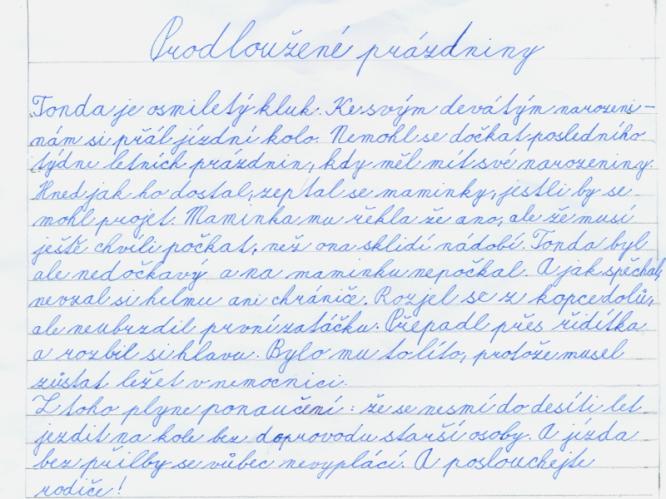 Prodloužené prázdniny
Tonda je osmiletý kluk. Ke svým devátým narozeni-
nám si přál jízdní kolo. Nemohl se dočkat posledního
týdne letních prázdnin, kdy měl mít své narozeniny.
Hned jak ho dostal, zeptal se maminky, jestli by se
mohl projet. Maminka mu řekla že ano, ale že musí
ještě chvíli počkat, než ona sklidí nádobí. Tonda byl
ale nedočkavý a na maminku nepočkal. A jak spěchal,
nevzal si helmu ani chrániče. Rozjel se z kopce dolů,
ale neubrzdil první zatáčku. Přepadl přes řidítka
a rozbil si hlavu. Bylo mu to líto, protože musel
zůstat ležet v nemocnici.
Z toho plyne ponaučení: že se nesmí do desíti let
jezdit na kole bez doprovodu starší osoby. A jízda
bez přilby se vůbec nevyplácí. A poslouchejte
rodiče!